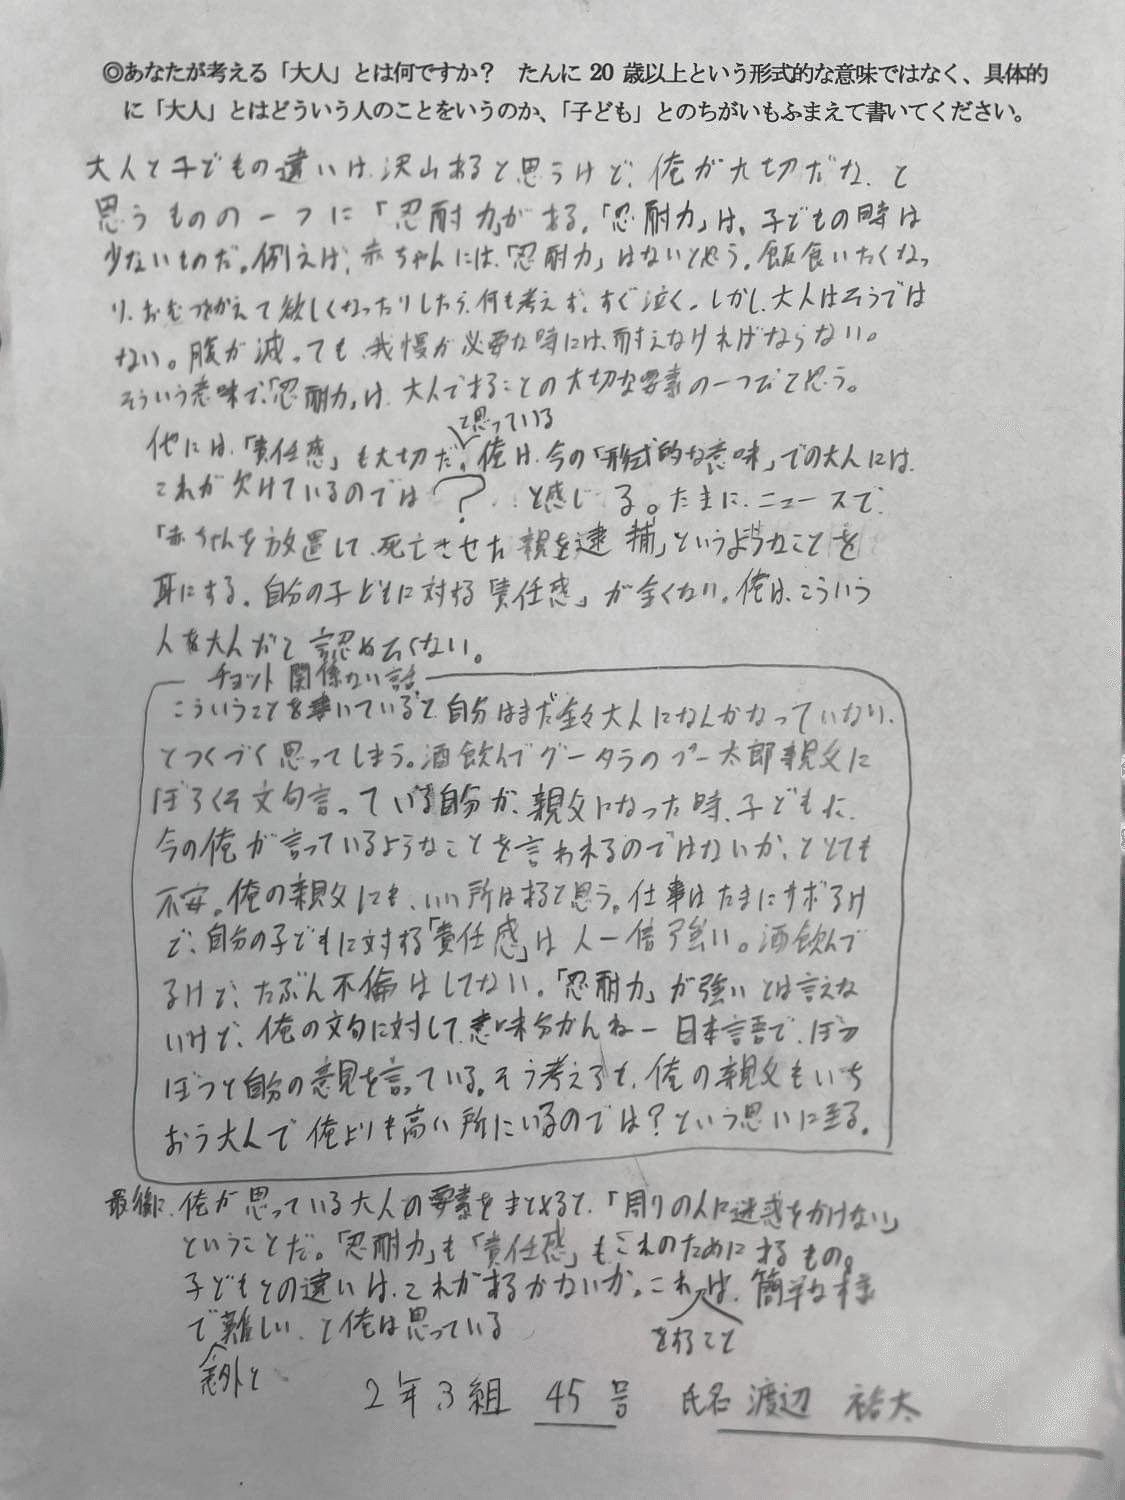 ◎あなたが考える「大人」とは何ですか？　たんに 20 歳以上という形式的な意味ではなく、具体的
に「大人」とはどういう人のことをいうのか、「子ども」とのちがいもふまえて書いてください。
大人と子どもの違いは、沢山あると思うけど、俺が大切だな、と
思うものの一つに「忍耐力」がある。「忍耐力」は、子どもの時は
少ないものだ。例えば、赤ちゃんには、「忍耐力」はないと思う。飯食いたくなっ
り、おむつをかえて欲しくなったりしたら、何も考えず、すぐ泣く。しかし、大人はそうでは
ない。腹が減っても、我慢が必要な時には、耐えなければならない。
そういう意味で、「忍耐力」は、大人であることの大切な要素の一つだと思う。
と思っている
他には、「責任感」も大切だ。俺は、今の「形式的な意味」での大人には、
これが欠けているのでは？と感じる。たまに、ニュースで、
「赤ちゃんを放置して、死亡させた親を逮捕」というようなことを
耳にする。自分の子どもに対する「責任感」が全くない。俺は、こういう
人を大人だと認めたくない。
チョット関係ない話
こういうことを書いていると、自分はまだ全々大人になんかなっていない、
とつくづく思ってしまう。酒飲んでグータラのプー太郎親父に
ぼろくそ文句言っている自分が、親父になった時、子どもに、
今の俺が言っているようなことを言われるのではないか、ととても
不安。俺の親父にも、いい所はあると思う。仕事はたまにサボるけ
ど、自分の子どもに対する「責任感」は人一倍強い。酒飲んで
るけど、たぶん不倫はしてない。「忍耐力」が強いとは言えな
いけど、俺の文句に対して、意味分かんねー日本言語で、ぼつ
ぼつと自分の意見を言っている。そう考えると、俺の親父もいち
おう大人で俺よりも高い所にいるのでは？という思いに至る。
最後に、俺が思っている大人の要素をまとめると、「周りの人に迷惑をかけない」
ということだ。「忍耐力」も「責任感」もこれのためにあるもの。
子どもとの違いは、これがあるかないか。これは、簡単な様
で難しい、と俺は思っている
をすること
意外と
2年3組 45号 氏名 渡辺 裕太